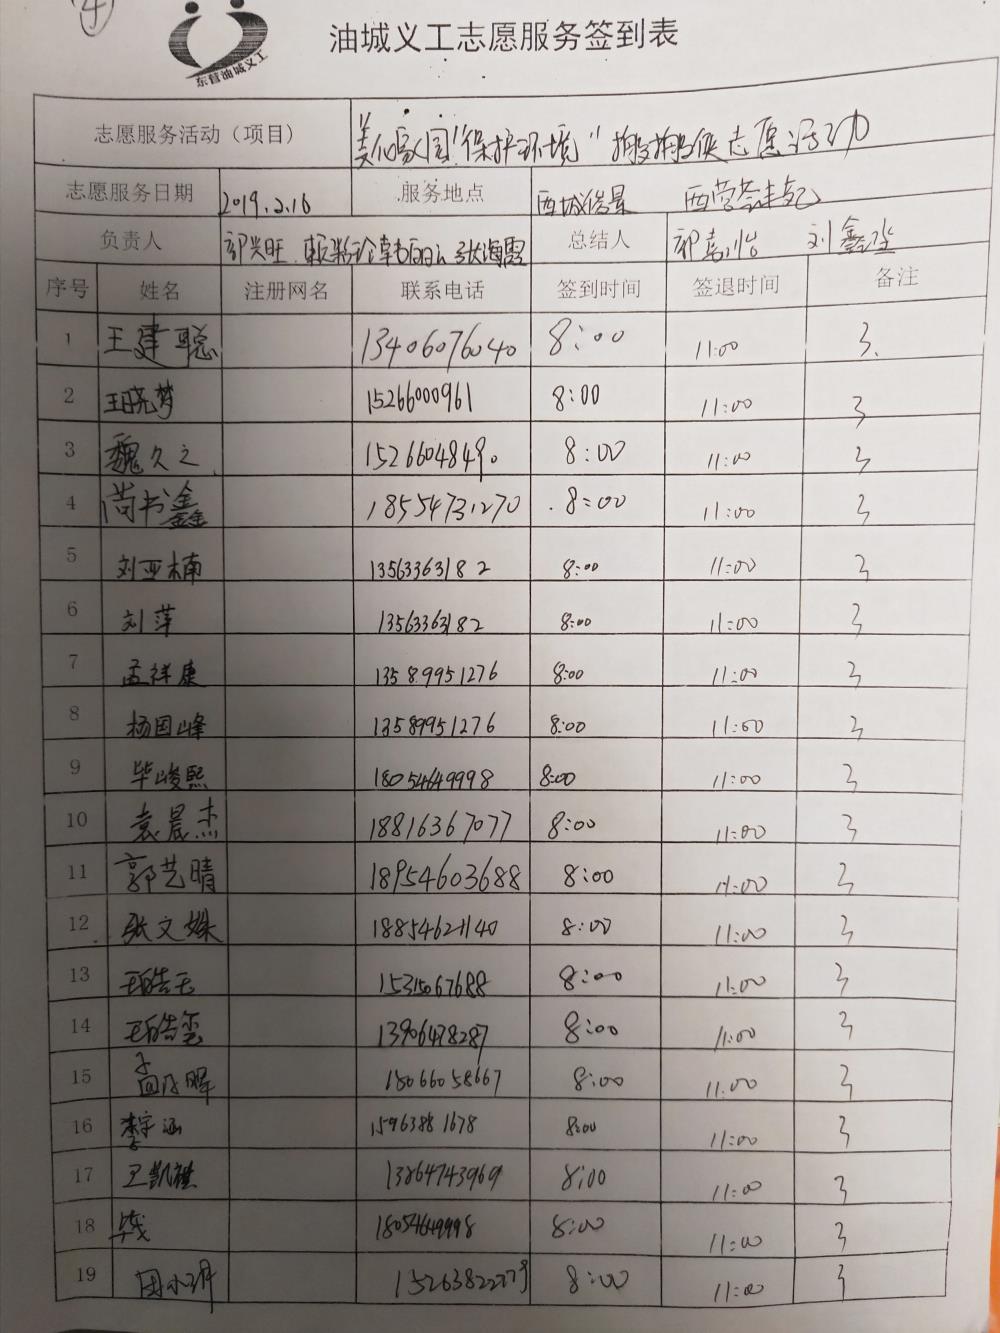 4
东营油城义工
油城义工志愿服务签到表
志愿服务活动（项目） 美化家园"保护环境" 志愿活动
志愿服务日期 2019.2.16 服务地点 西城俊景
负责人 郭兴旺 张海霞 总结人 刘鑫
序号 姓名 注册网名 联系电话 签到时间 签退时间 备注
1 王建聪 13406076040 8:00 11:00 3.
2 王晓梦 15266000961 8:00 11:00 3
3 魏久之 15266048490 8:00 11:00 3
4 尚书鑫 18554731270 8:00 11:00 3
5 刘亚楠 13563363182 8:00 11:00 3
6 刘萍 13563363182 8:00 11:00 3
7 孟祥康 13589951276 8:00 11:00 3
8 杨国峰 13589951276 8:00 11:00 3
9 毕峻熙 18054649998 8:00 11:00 3
10 袁晨杰 18816367077 8:00 11:00 3
11 郭艺晴 18954603688 8:00 11:00 3
12 张文姝 18854621140 8:00 11:00 3
13 王皓玉 15315067688 8:00 11:00 3
14 王皓玺 13906478287 8:00 11:00 3
15 15066058667 8:00 11:00 3
16 李宇涵 15963881678 8:00 11:00 3
17 王凯祺 13864743969 8:00 11:00 3
18 18054649998 8:00 11:00 3
19 8:00 11:00 3